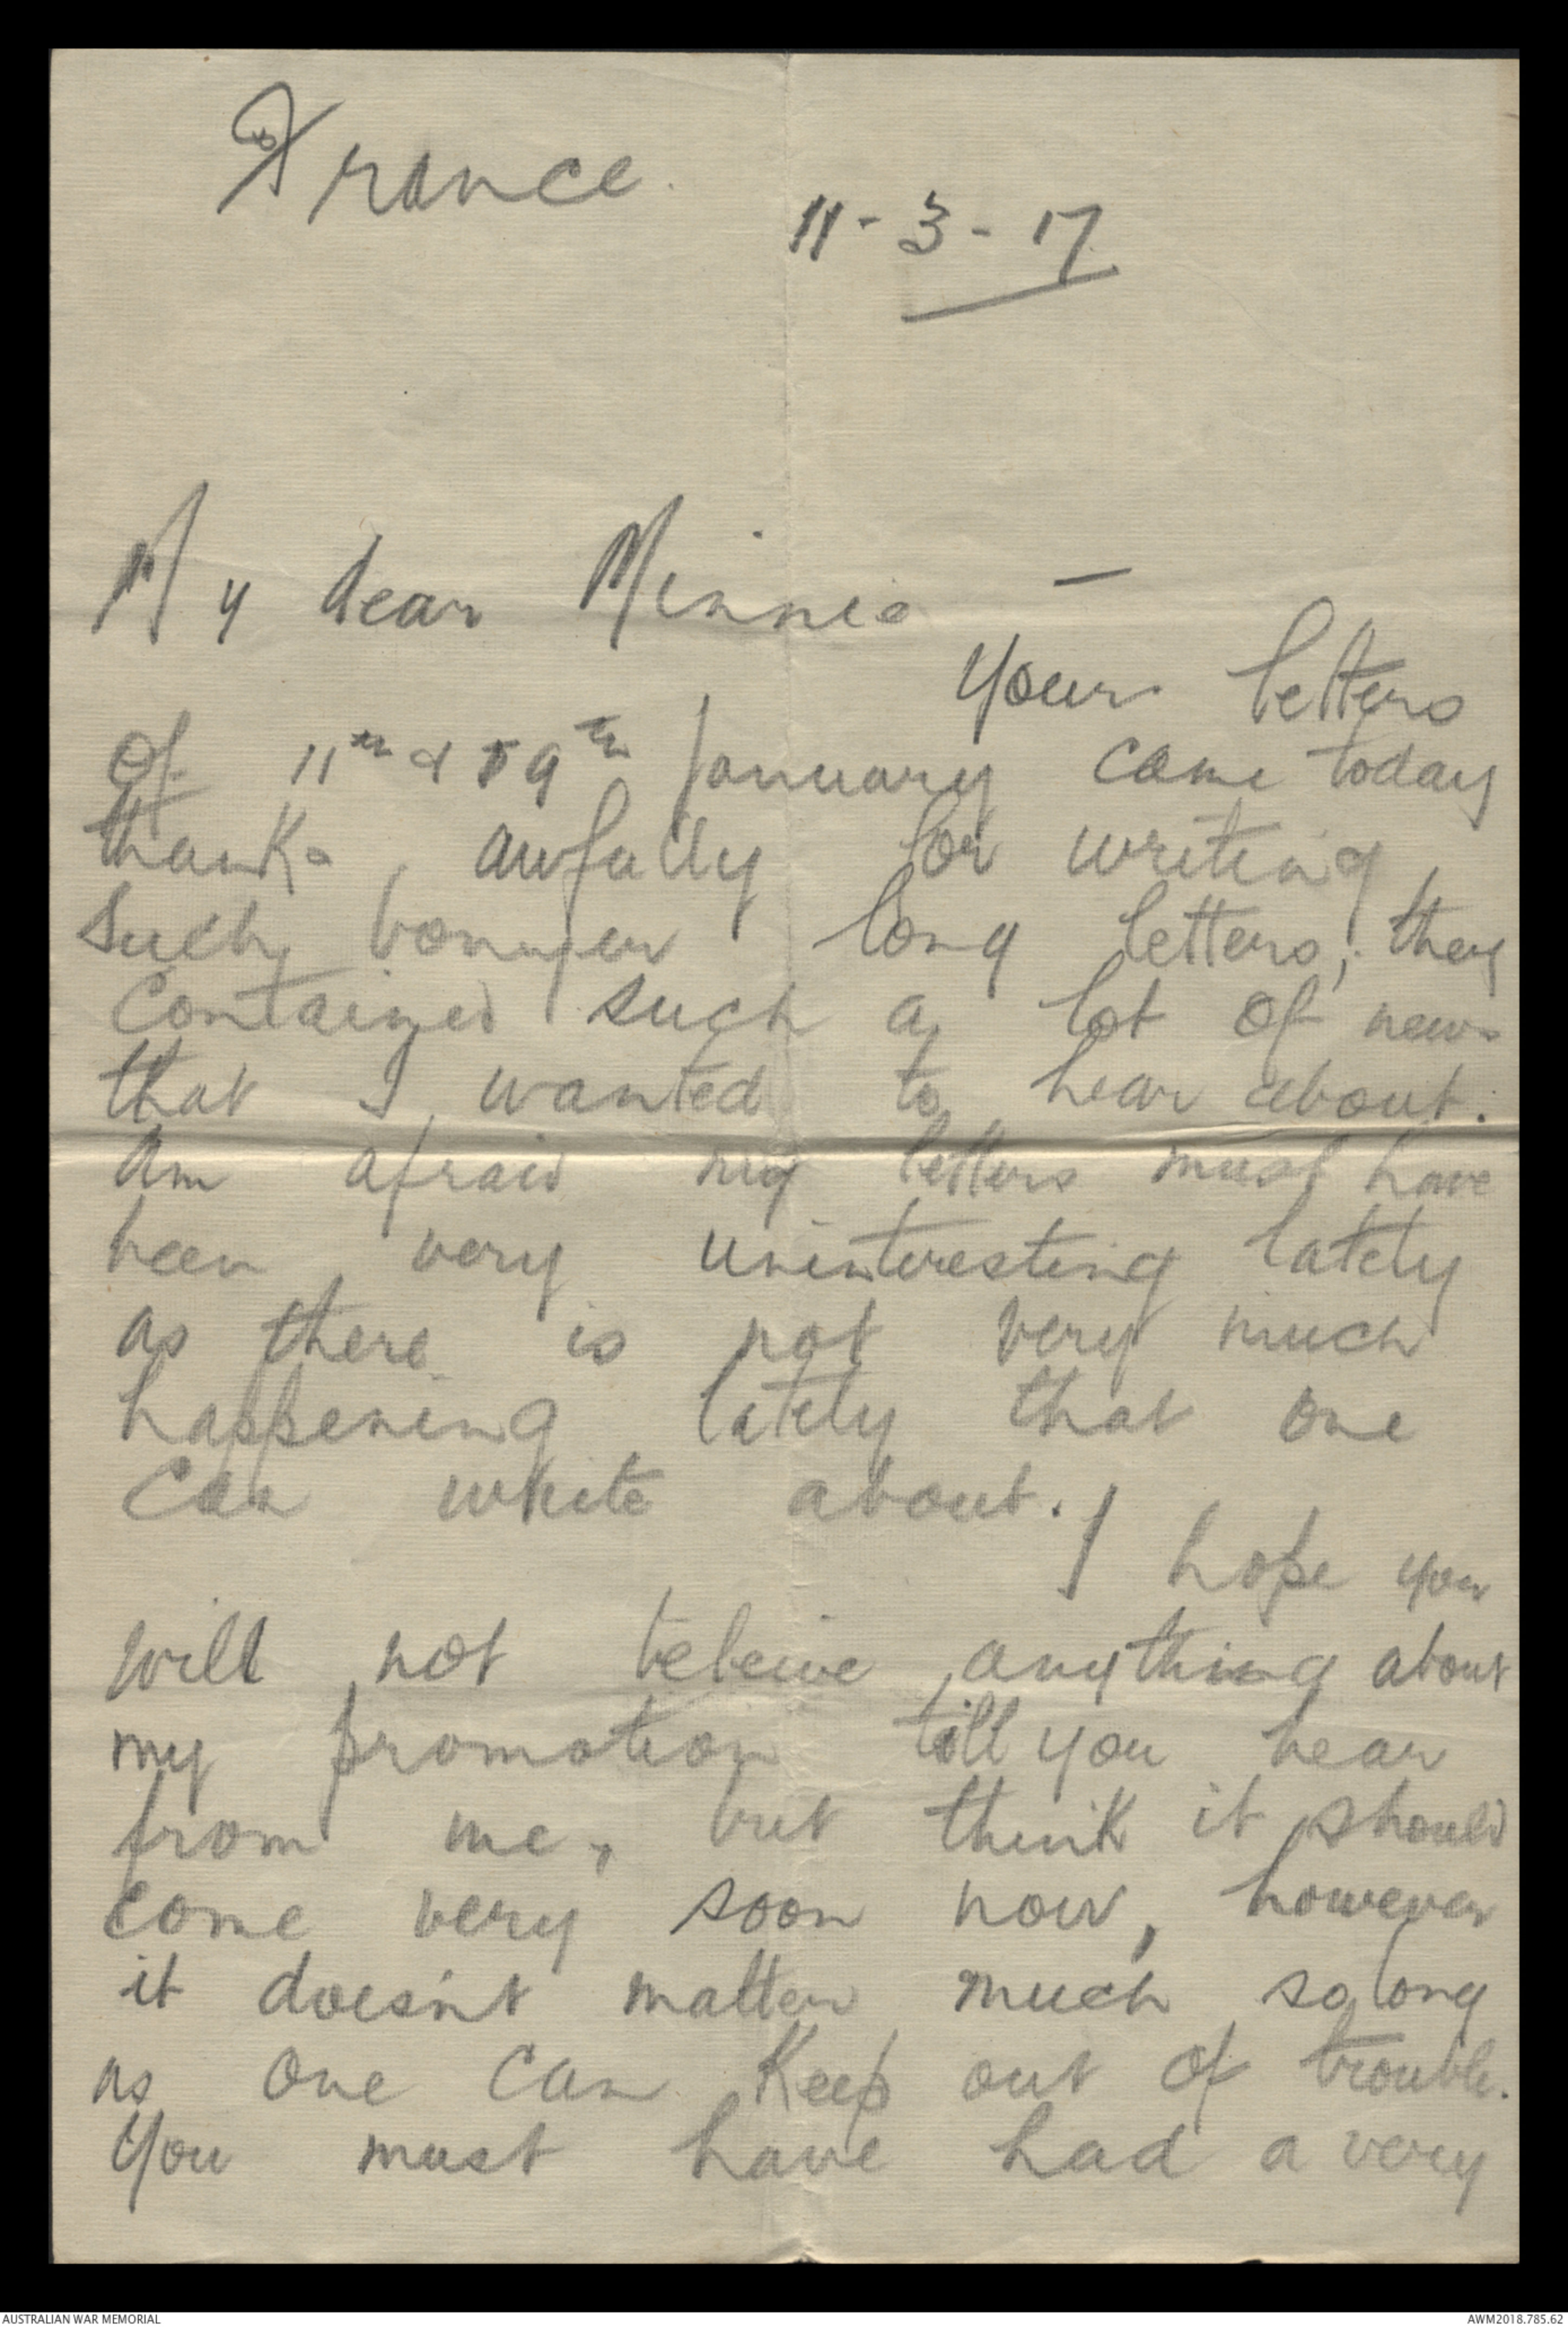 France.
11-3-17
My dear Minnie —
Your letters
of 11th & 19th January came today
thanks awfully for writing
such bonyer long letters, they
contained such a lot of news
that I wanted to hear about.
Am afraid my letters must have
been very uninteresting lately
as there is not very much
happening lately that one
can write about.
I hope you
will not beleive anything about
my promotion till you hear
from me, but think it should
come very soon now, however
it doesn't matter much so long
as one can keep out of trouble.
You must have had a very
AUSTRALIAN WAR MEMORIAL
AWM2018.785.62